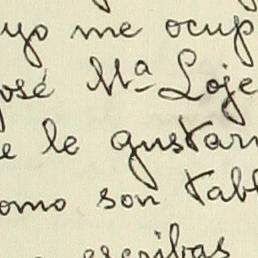 yo me ocup
José Mª Loje
e le gustar
omo son tabl
escribas